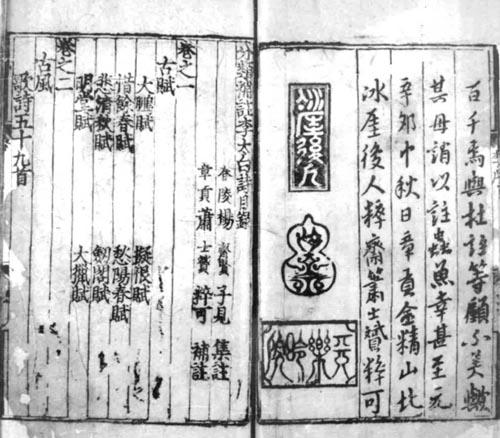 百千焉與杜註等顧不美歟
其毋誚以註蟲魚幸甚至元
辛卯中秋日章貢金精山北
冰崖後人粹齋蕭士贇粹可
冰崖後人
分類補註李太白詩目錄
舂陵楊 齊賢 子見 集註
章貢蕭 士贇 粹可 補註
卷之一
古賦
大鵬賦 擬恨賦
惜餘春賦 愁陽春賦
悲清秋賦 劒閣賦
明堂賦 大獵賦
卷之二
古風
歌詩五十九首